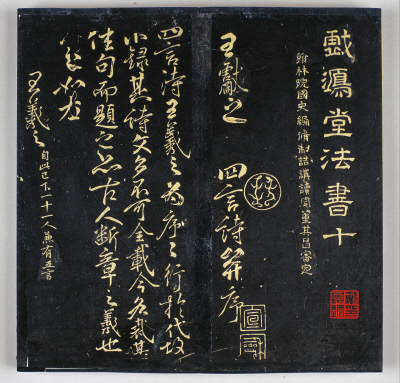 戲鴻堂法書十
翰林院國史編脩制誥講讀官董其昌審定
王獻之
四言詩并序
四言詩王羲之為序序行於代故
不錄其詩文多不可全載今各裁其
佳句而題之亦古人斷章之義也
王羲之 自此已下十一人兼有五言